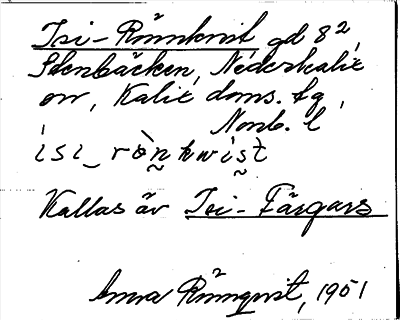 Isi-Rönnkvist, gd 8²,
Stenbäcken, Nederkalix
ow, Kalix doms. fg,
Norrb. l
isi_rònkwist
Kallas äv Isi-Färgars
Anna Rönnqvist, 1951